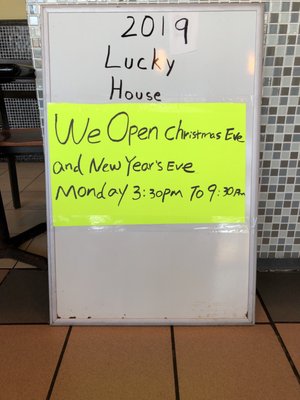 2019
Lucky
House
We Open Christmas Eve
and New Year's Eve
Monday 3:30pm To 9:30pm